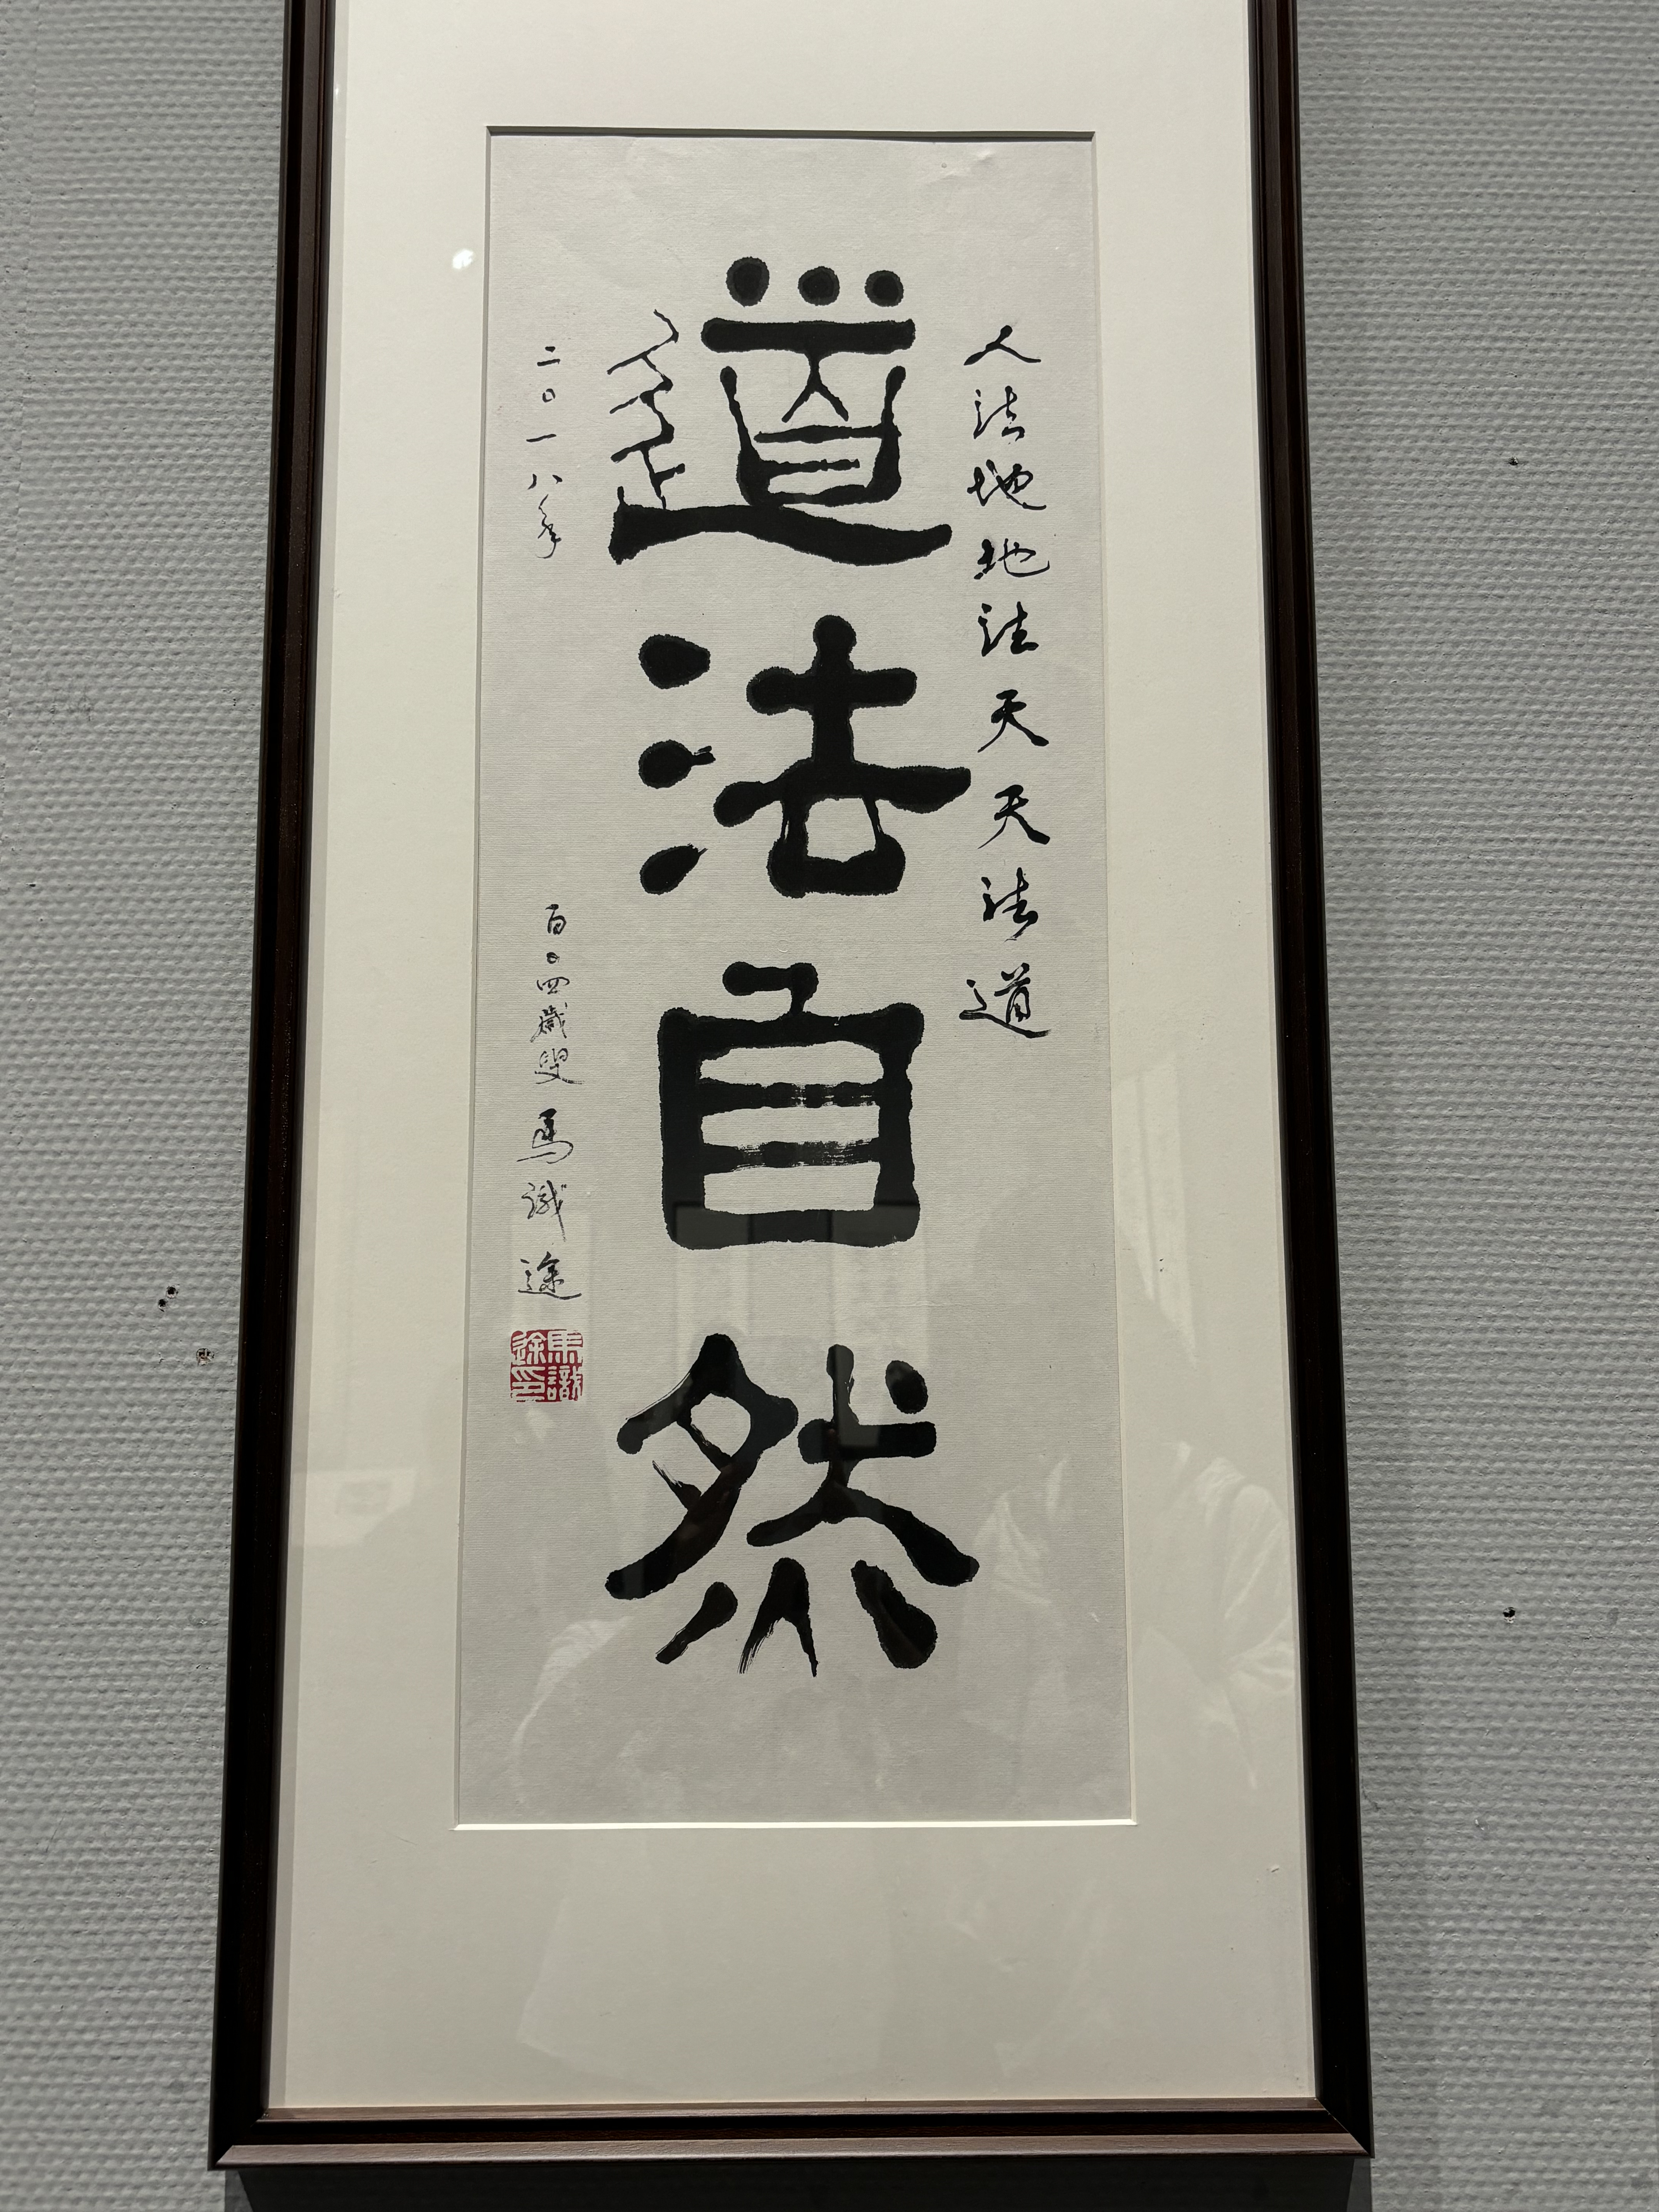 人法地地法天天法道
道法自然
二〇一八年
百〇四歲叟 馬識途
馬識途印